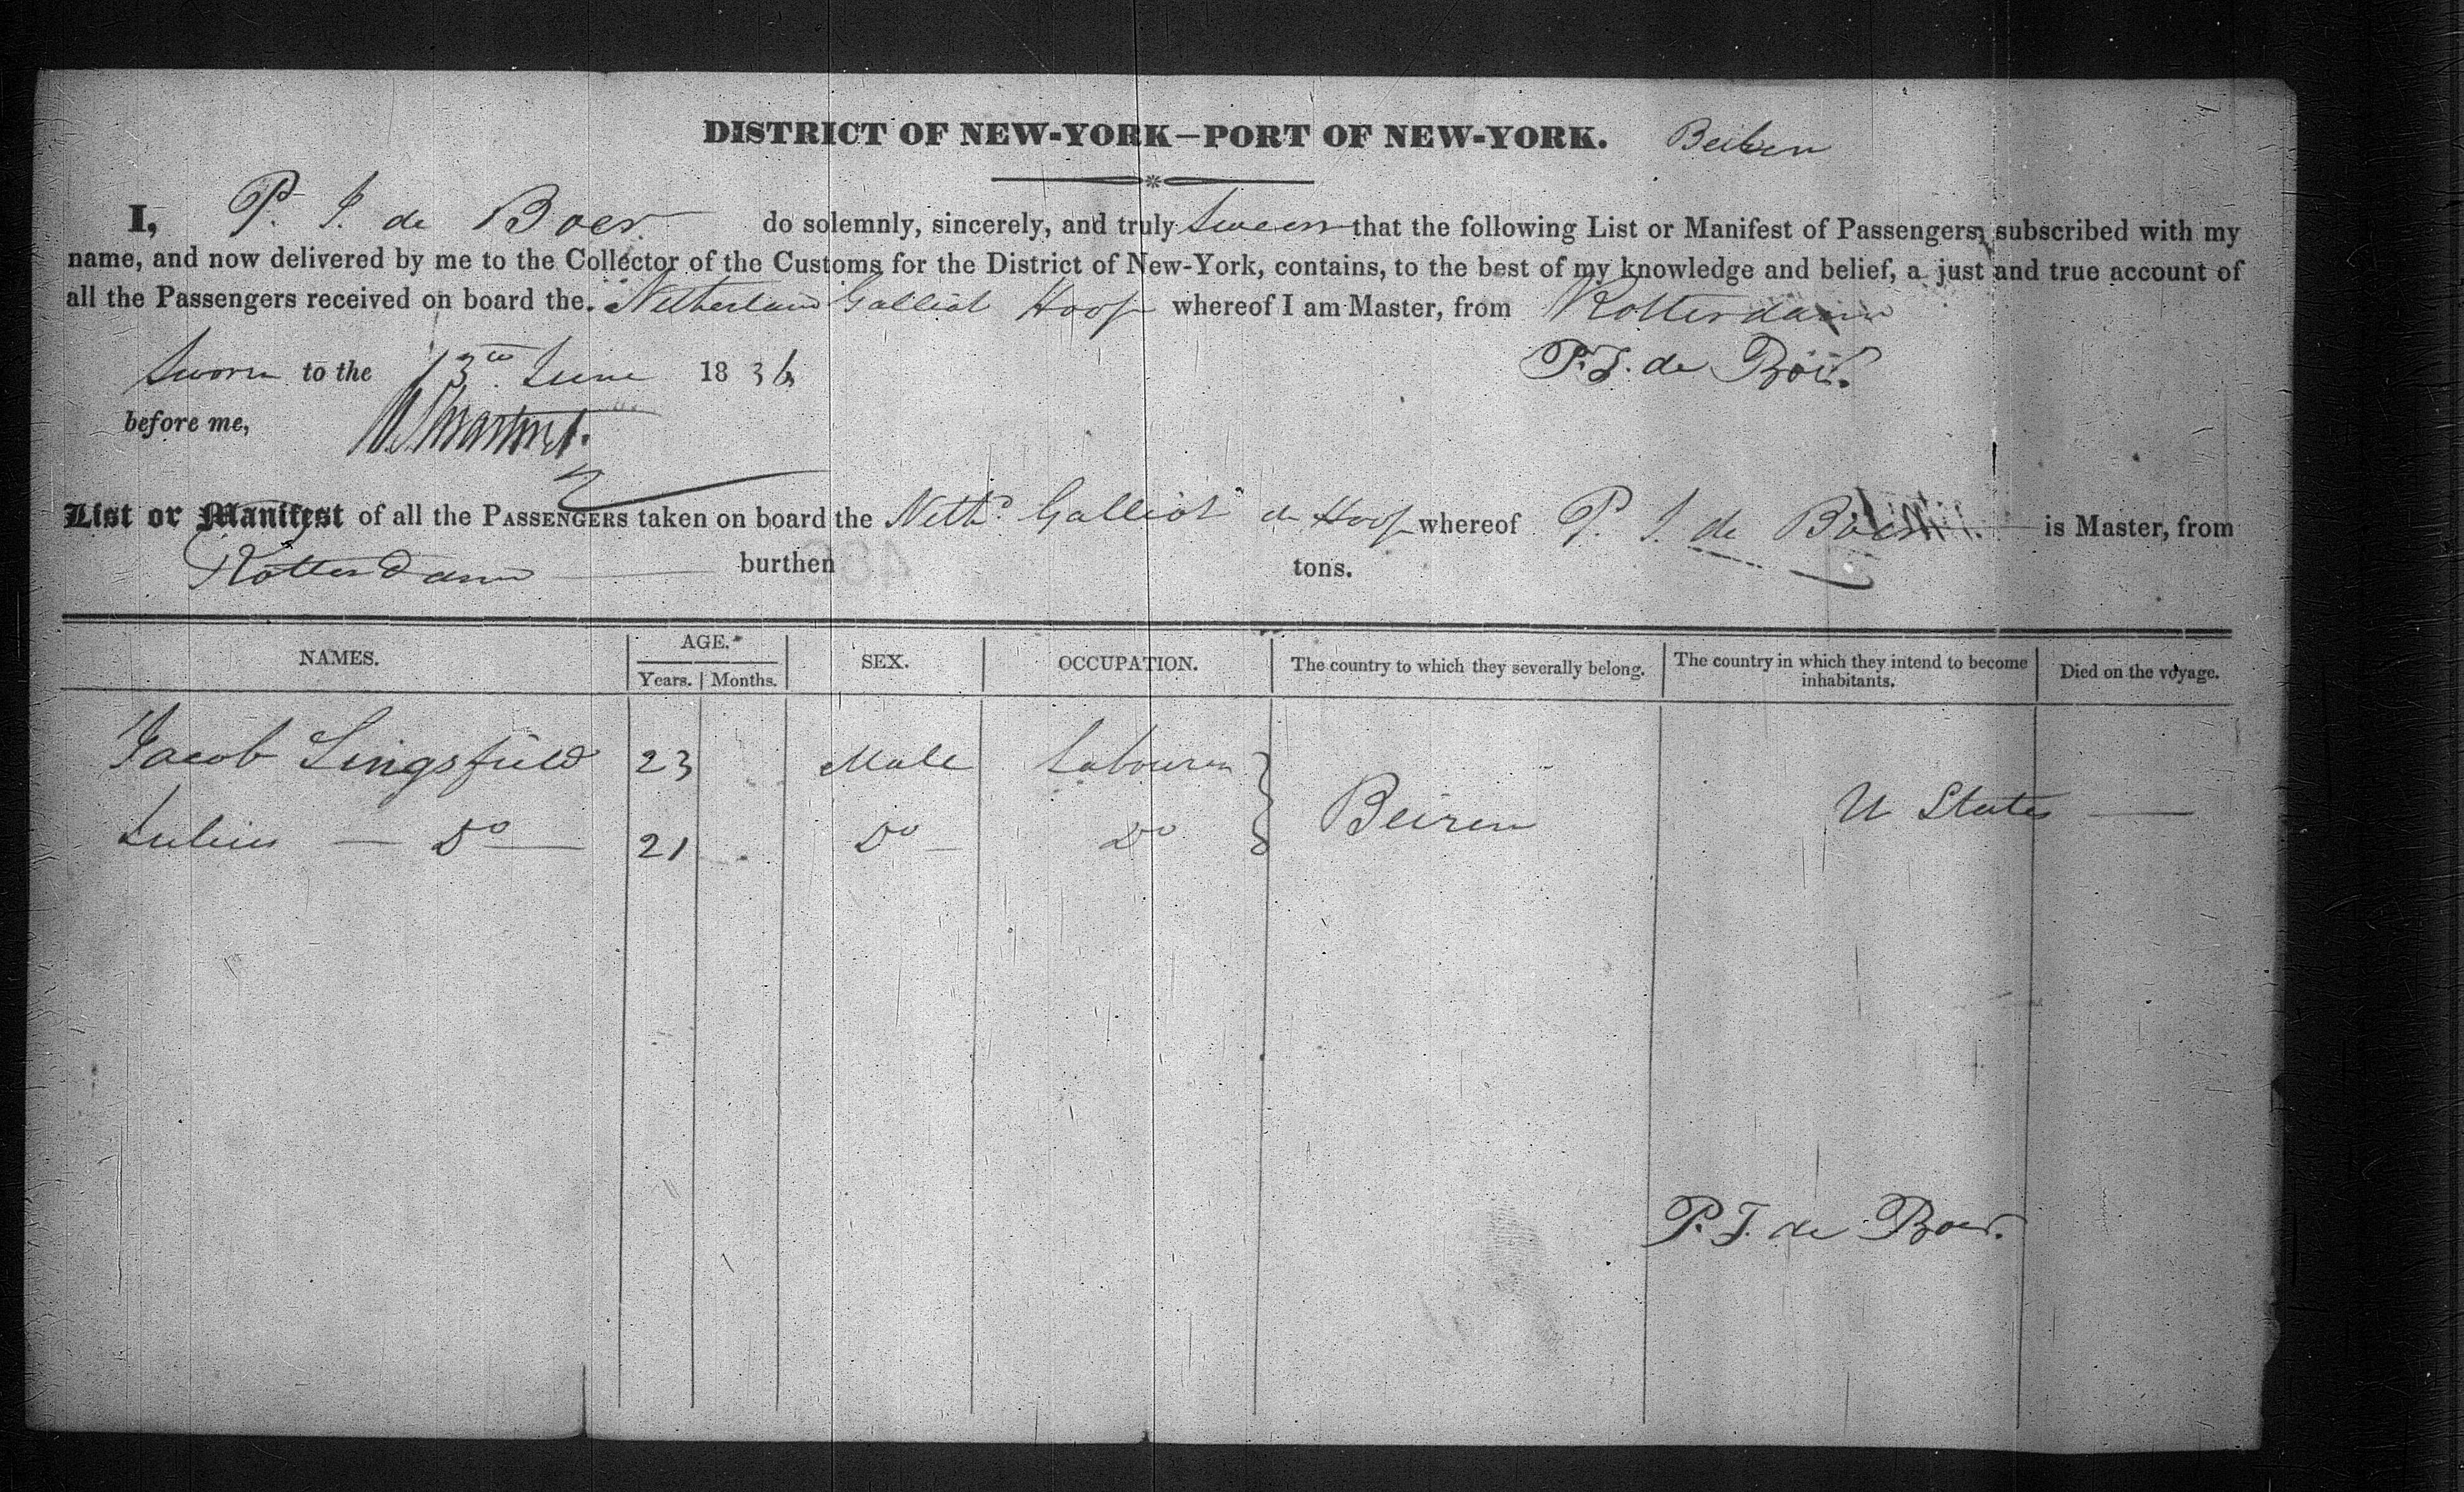 DISTRICT OF NEW-YORK—PORT OF NEW-YORK.
I, P. J. de Boer do solemnly, sincerely, and truly swear that the following List or Manifest of Passengers, subscribed with my
name, and now delivered by me to the Collector of the Customs for the District of New-York, contains, to the best of my knowledge and belief, a just and true account of
all the Passengers received on board the Netherland Galliot Hoop whereof I am Master, from Rotterdam
Sworn to the 13th June 1836 P. J. de Boer.
before me,
List or Manifest of all the PASSENGERS taken on board the Nethd Galliot de Hoop whereof P. J. de Boer is Master, from
Rotterdam burthen tons.
NAMES. AGE. SEX. OCCUPATION. The country to which they severally belong. The country in which they intend to become inhabitants. Died on the voyage.
Years. Months.
Jacob Lingsfield 23 Male Labourer
Beiren U States
Julius Do 21 Do Do
P. J. de Boer.